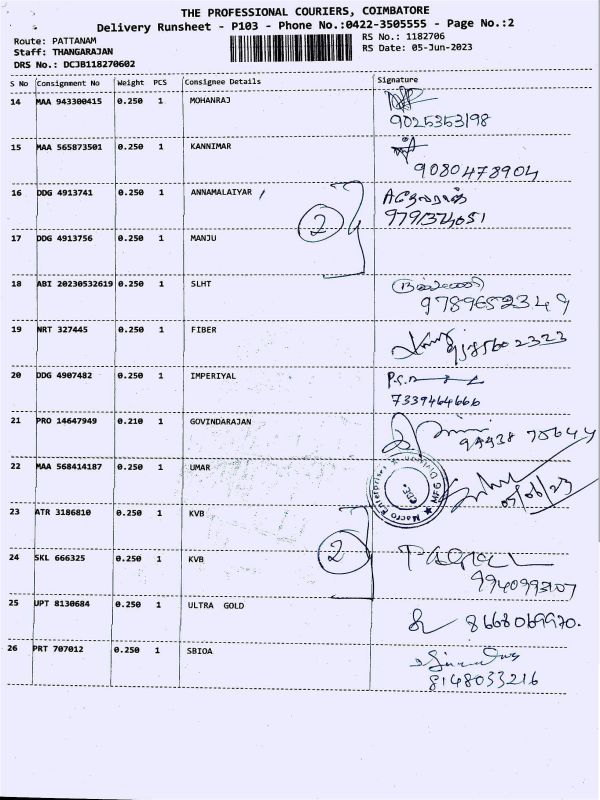 THE PROFESSIONAL COURIERS, COIMBATORE
Delivery Runsheet - P103 - Phone No.:0422-3505555 - Page No.:2
Route: PATTANAM
RS No.: 1182706
Staff: THANGARAJAN
RS Date: 05-Jun-2023
DRS No.: DCJB118270602
S No Consignment No Weight PCS Consignee Details Signature
14 MAA 943300415 0.250 1 MOHANRAJ
9025353198
15 MAA 565873501 0.250 1 KANNIMAR
9080478904
16 DDG 4913741 0.250 1 ANNAMALAIYAR
2
17 DDG 4913756 0.250 1 MANJU
18 ABI 20230532619 0.250 1 SLHT
9789652349
19 NRT 327445 0.250 1 FIBER
20 DDG 4907482 0.250 1 IMPERIYAL
7339464666
21 PRO 14647949 0.210 1 GOVINDARAJAN
22 MAA 568414187 0.250 1 UMAR
Macro Enterprises
05/06/23
23 ATR 3186810 0.250 1 KVB
2
24 SKL 666325 0.250 1 KVB
25 UPT 8130684 0.250 1 ULTRA GOLD
8668069970.
26 PRT 707012 0.250 1 SBIOA
8148033216